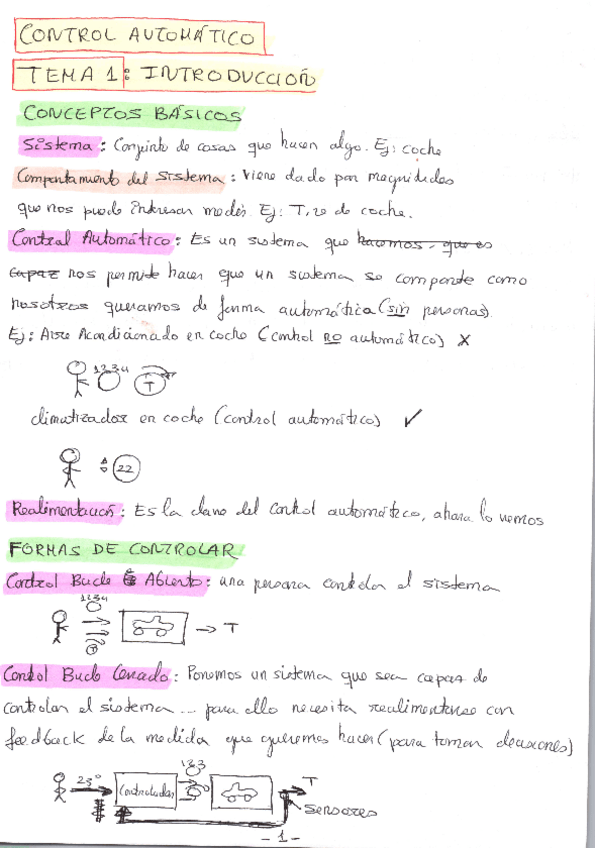 CONTROL AUTOMÁTICO
TEMA 1: INTRODUCCIÓN
CONCEPTOS BÁSICOS
Sistema: Conjunto de cosas que hacen algo. Ej: coche
Comportamiento del sistema: Viene dado por magnitudes
que nos puede interesar medir. Ej: T, de coche.
Control Automático: Es un sistema que hacemos, que es
capaz nos permite hacer que un sistema se comporte como
nosotros queramos de forma automática (sin personas).
Ej: Aire Acondicionado en coche (control no automático) X
1 2 3 4
T
climatizador en coche (control automático) ✓
22
Realimentación: Es la clave del control automático, ahora lo vemos
FORMAS DE CONTROLAR
Control Bucle Abierto: una persona controla el sistema
1 2 3 4
T
→ T
Control Bucle Cerrado: Ponemos un sistema que sea capaz de
controlar el sistema ... para ello necesita realimentarse con
feedback de la medida que queremos hacer (para tomar decisiones)
23° Controlador 123 T
sensores
- 1 -